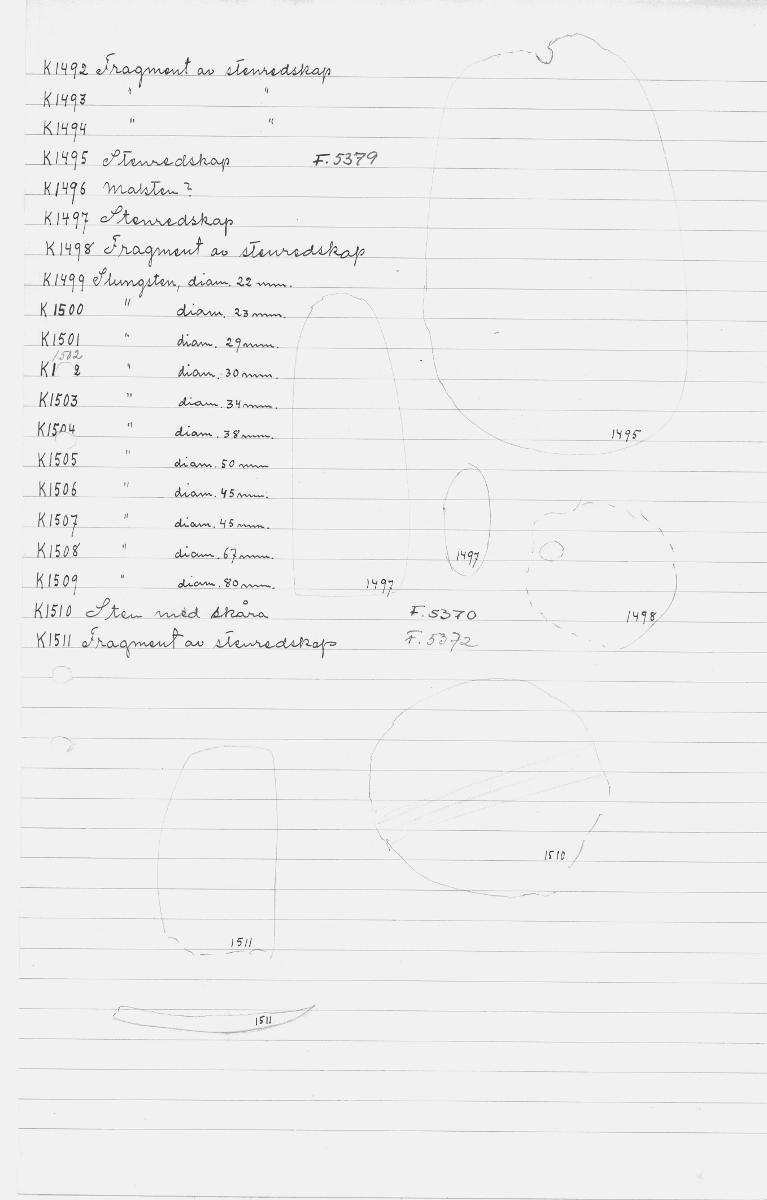 K1492 Fragment av stenredskap
K1493 " "
K1494 " "
K1495 Stenredskap F. 5379
K1496 Malsten?
K1497 Stenredskap
K1498 Fragment av stenredskap
K1499 Slungsten, diam. 22 mm.
K1500 " diam. 23 mm.
K1501 " diam. 29 mm.
1502
K1 2 " diam. 30 mm.
K1503 " diam. 34 mm.
K1504 " diam. 38 mm.
1495
K1505 " diam. 50 mm
K1506 " diam. 45 mm.
K1507 " diam. 45 mm.
K1508 " diam. 67 mm.
1497
K1509 " diam. 80 mm.
1497
K1510 Sten med skåra F. 5370
1498
K1511 Fragment av stenredskap F. 5372
1510
1511
1511